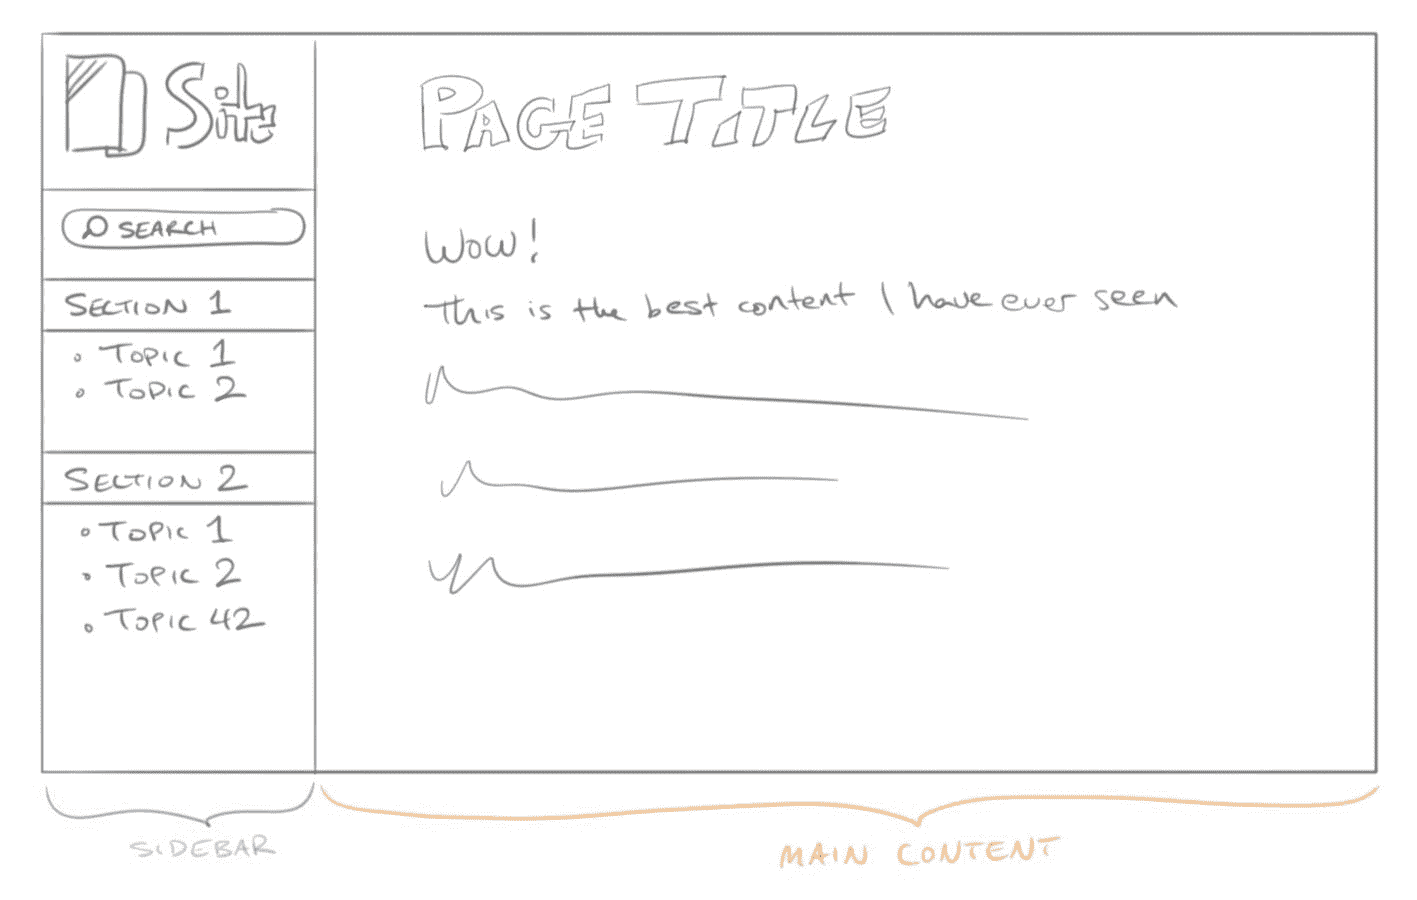 Site
SEARCH
SECTION 1
TOPIC 1
TOPIC 2
SECTION 2
TOPIC 1
TOPIC 2
TOPIC 42
PAGE TITLE
Wow!
This is the best content I have ever seen
SIDEBAR
MAIN CONTENT